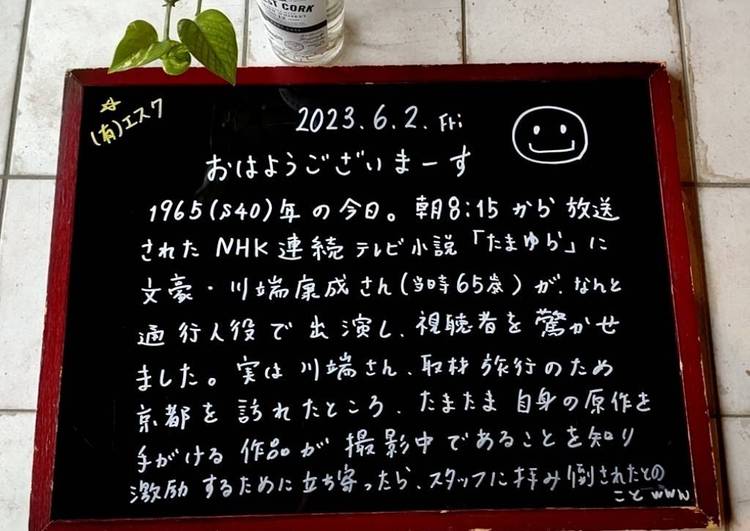 ST CORK
(有)エスワ
2023.6.2. Fri
おはようございまーす
1965(S40)年の今日。朝8:15から放送
された NHK連続テレビ小説「たまゆら」に
文豪・川端康成さん(当時65歳)が、なんと
通行人役で出演し、視聴者を驚かせ
ました。実は川端さん、取材旅行のため
京都を訪れたところ、たまたま自身の原作を
手がける作品が撮影中であることを知り
激励するために立ち寄ったら、スタッフに拝み倒されたとの
ことwww